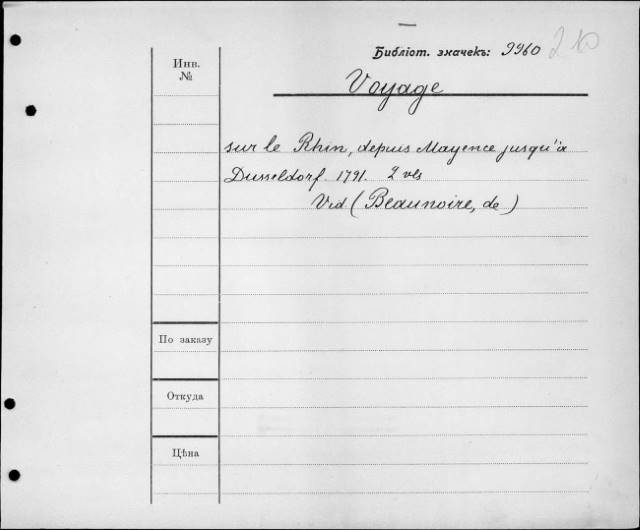 Библіот. значекъ: 9960
Инв.
№
Voyage
sur le Rhin, depuis Mayence jusqu'à
Dusseldorf. 1791. 2 vls
Vid (Beaunoire, de)
По заказу
Откуда
Цѣна